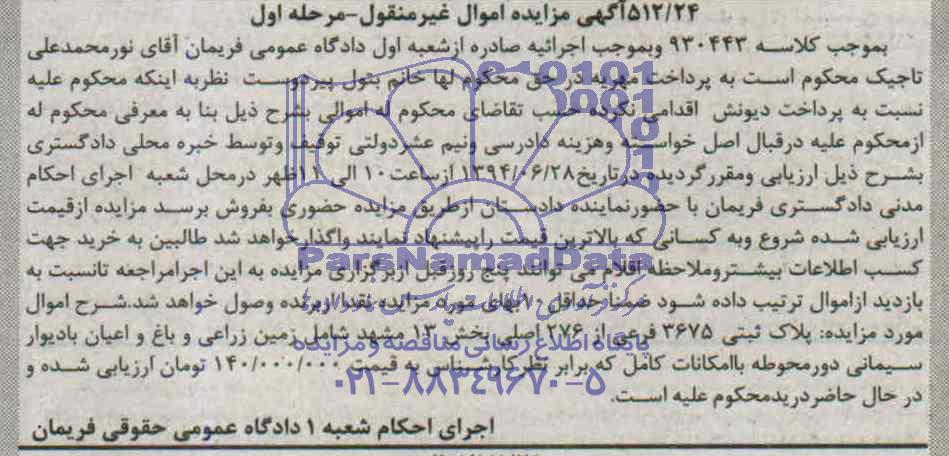 ۵۱۲/۲۴آگهی مزایده اموال غیرمنقول-مرحله اول
بموجب کلاسه ۹۳۰۴۴۳ وبموجب اجرائیه صادره ازشعبه اول دادگاه عمومی فریمان آقای نورمحمدعلی
تاجیک محکوم است به پرداخت مهریه در حق محکوم لها خانم بتول پیردوست نظربه اینکه محکوم علیه
نسبت به پرداخت دیونش اقدامی نکرده حسب تقاضای محکوم له اموالی بشرح ذیل بنا به معرفی محکوم له
ازمحکوم علیه درقبال اصل خواسته وهزینه دادرسی ونیم عشردولتی توقیف وتوسط خبره محلی دادگستری
بشرح ذیل ارزیابی ومقررگردیده درتاریخ۱۳۹۴/۰۶/۲۸ ازساعت۱۰ الی ۱۱ظهر درمحل شعبه اجرای احکام
مدنی دادگستری فریمان با حضورنماینده دادستان ازطریق مزایده حضوری بفروش برسد مزایده ازقیمت
ارزیابی شده شروع وبه کسانی که بالاترین قیمت راپیشنهاد نمایند واگذارخواهد شد طالبین به خرید جهت
کسب اطلاعات بیشتروملاحظه اقلام می توانند پنج روزقبل ازبرگزاری مزایده به این اجرامراجعه تانسبت به
بازدید ازاموال ترتیب داده شود ضمناحداقل ۱۰٪بهای مزایده نقدا ازبرنده وصول خواهد شد.شرح اموال
مورد مزایده: پلاک ثبتی ۳۶۷۵ فرعی از ۲۷۶ اصلی بخش ۱۳ مشهد شامل زمین زراعی و باغ و اعیان بادیوار
سیمانی دورمحوطه باامکانات کامل که برابر نظرکارشناس به قیمت ۱۴۰/۰۰۰/۰۰۰ تومان ارزیابی شده و
در حال حاضردریدمحکوم علیه است.
اجرای احکام شعبه ۱ دادگاه عمومی حقوقی فریمان
ParsNamadData
پایگاه اطلاع رسانی مناقصه و مزایده
۰۲۱-۸۸۳۴۹۶۷۰-۵